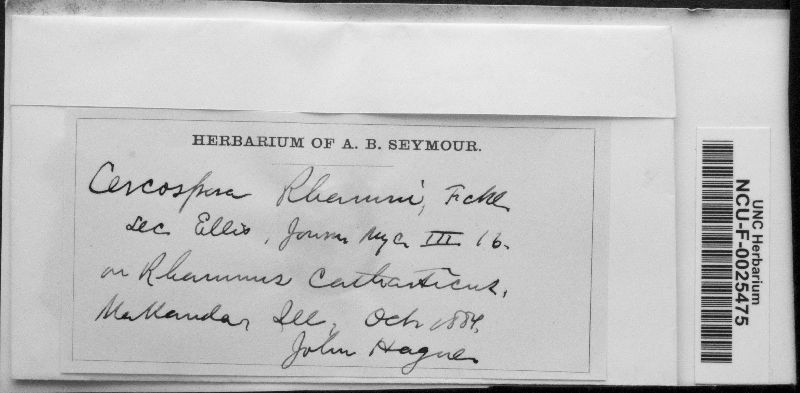 HERBARIUM OF A. B. SEYMOUR.
Cercospora Rhamni, Fckl.
sec. Ellis, Journ Myc. III 16.
on Rhamnus Catharticus,
Makanda, Ill, Oct. 1884.
John Hagner
UNC Herbarium
NCU-F-0025475